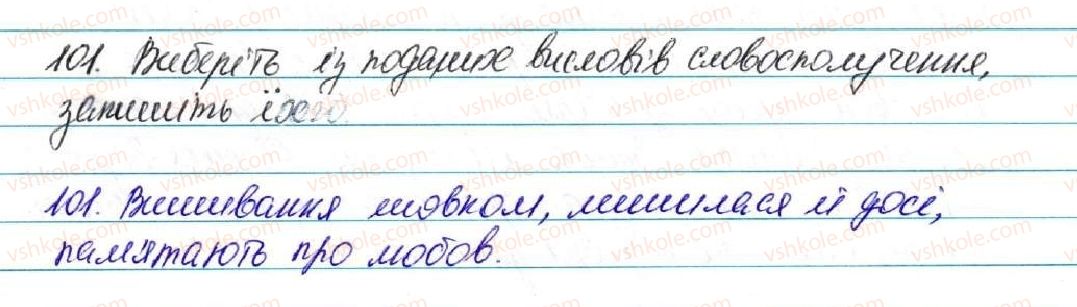 101. Виберіть із поданих висловів словосполучення,
запишіть його.
101. Вишивання шовком, лишилася й досі,
пам'ятають про любов.